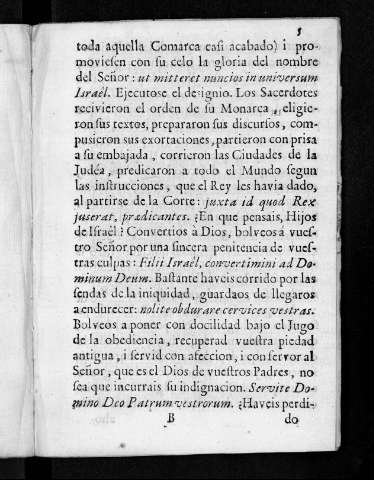 5
toda aquella Comarca casi acabado) i pro-
moviesen con su celo la gloria del nombre
del Señor: ut mitteret nuncios in universum
Israël. Ejecutose el designio. Los Sacerdotes
recivieron el orden de su Monarca, eligie-
ron sus textos, prepararon sus discursos, com-
pusieron sus exortaciones, partieron con prisa
a su embajada, corrieron las Ciudades de la
Judéa, predicaron a todo el Mundo segun
las instrucciones, que el Rey les havia dado,
al partirse de la Corte: juxta id quod Rex
jusserat, prædicantes. ¿En que pensais, Hijos
de Israël? Convertios à Dios, bolveos à vues-
tro Señor por una sincera penitencia de vues-
tras culpas: Filii Israël, convertimini ad Do-
minum Deum. Bastante haveis corrido por las
sendas de la iniquidad, guardaos de llegaros
a endurecer: nolite obdurare cervices vestras.
Bolveos a poner con docilidad bajo el Jugo
de la obediencia, recuperad vuestra piedad
antigua, i servid con afeccion, i con fervor al
Señor, que es el Dios de vuestros Padres, no
sea que incurrais su indignacion. Servite Do-
mino Deo Patrum vestrorum. ¿Haveis perdi-
B do